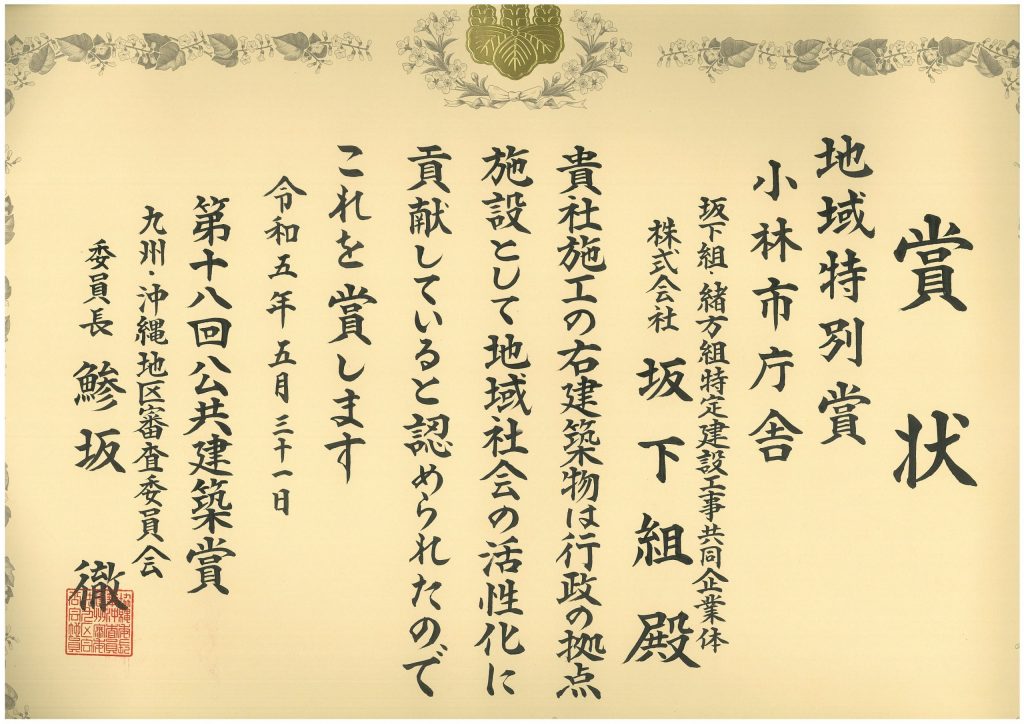 賞状
地域特別賞
小林市庁舎
坂下組・緒方組特定建設工事共同企業体
株式会社 坂下組殿
貴社施工の右建築物は行政の拠点
施設として地域社会の活性化に
貢献していると認められたので
これを賞します
令和五年五月三十一日
第十八回公共建築賞
九州・沖縄地区審査委員会
委員長 鯵坂徹